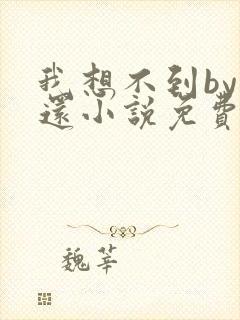 我想不到by
還小說免費
魏莘